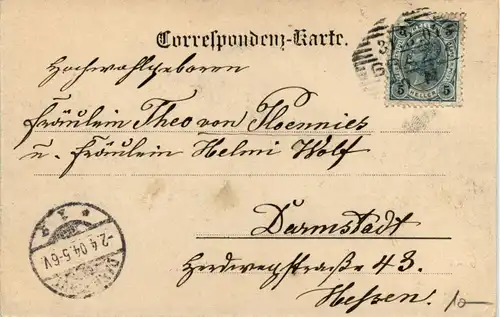 Correspondenz-Karte.
Hochwohlgeboren
Fräulein Theo von Ploennies
u. Fräulein Helmi Wolf
Darmstadt
Herdwegstraße 43.
Hessen.
5 HELLER 5
-2.4.04.5-6V
10